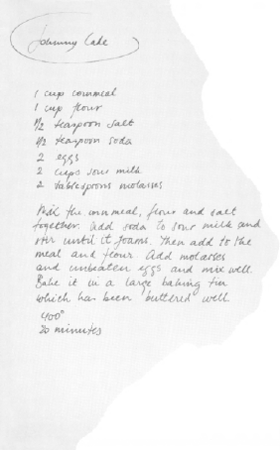 Johnny Cake
1 cup cornmeal
1 cup flour
1/2 teaspoon salt
1/2 teaspoon soda
2 eggs
2 cups sour milk
2 tablespoons molasses
Mix the cornmeal, flour and salt
together. Add soda to sour milk and
stir until it foams. Then add to the
meal and flour. Add molasses
and unbeaten eggs and mix well.
Bake it in a large baking tin
which has been buttered well.
400°
20 minutes